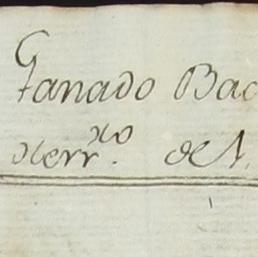 Ganado Bac
Herr.do de A